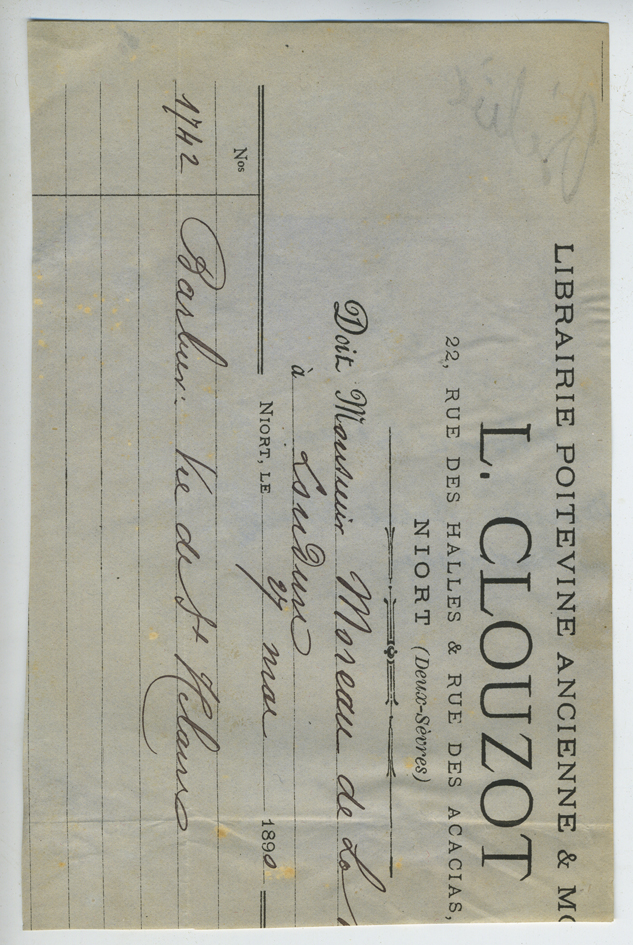 LIBRAIRIE POITEVINE ANCIENNE & MO
L. CLOUZOT
22, RUE DES HALLES & RUE DES ACACIAS,
NIORT (Deux-Sèvres)
Doit Monsieur Moreau de La
à Loudun
NIORT, LE 27 mai 1890
Nos
1742 Barbier. Vie de St Hilaire